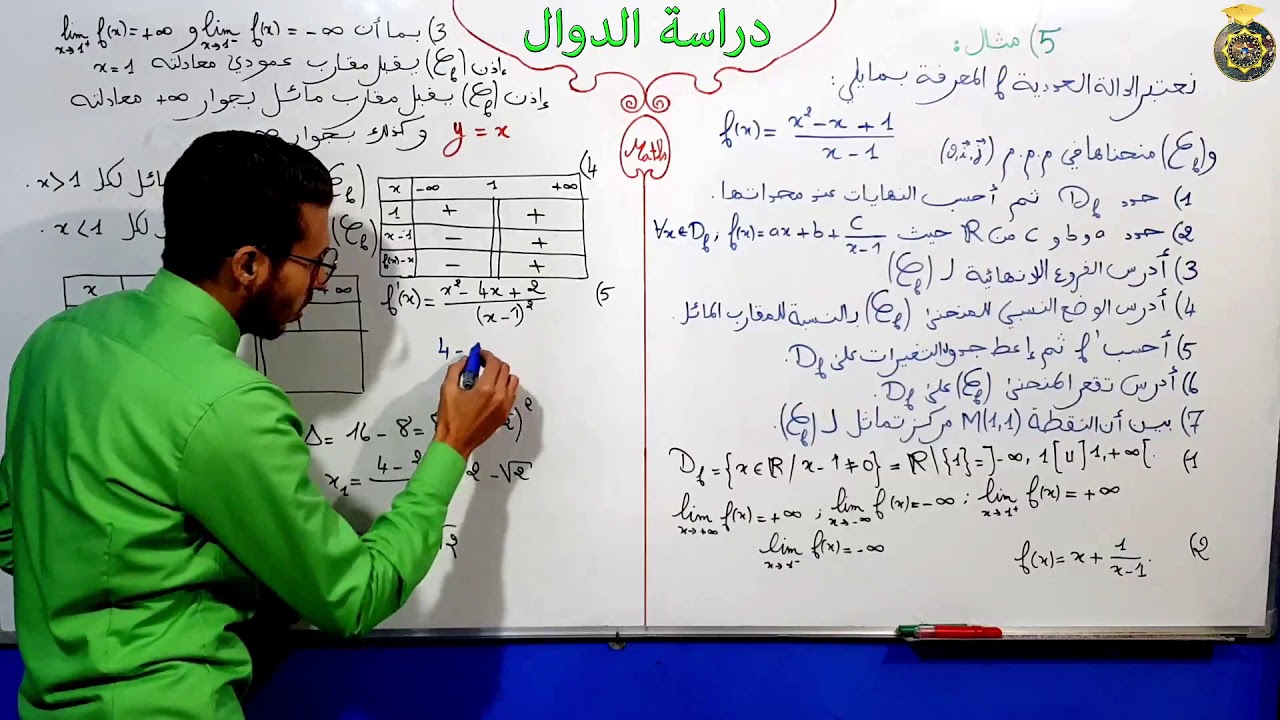 دراسة الدوال
Maths
5) مثال:
نعتبر الدالة العددية f المعرفة بمايلي:
f(x) = (x² - x + 1)/(x - 1)
و (C_f) منحناها في م.م.م (O, i⃗, j⃗)
1) حدد D_f ثم أحسب النهايات عند محداتها.
2) حدد a و b و c من ℝ حيث ∀x∈D_f ; f(x) = ax + b + c/(x-1)
3) أدرس الفروع الانهائية لـ (C_f)
4) أدرس الوضع النسبي للمنحنى (C_f) بالنسبة للمقارب المائل.
5) أحسب f' ثم إعط جدول التغيرات على D_f.
6) أدرس تقعر المنحنى (C_f) على D_f.
7) بين أن النقطة M(1,1) مركز تماثل لـ (C_f).
1) D_f = {x∈ℝ / x-1≠0} = ℝ\{1} = ]-∞, 1[ ∪ ]1, +∞[.
lim x→+∞ f(x) = +∞ ; lim x→-∞ f(x) = -∞ ; lim x→1⁺ f(x) = +∞
lim x→1⁻ f(x) = -∞
2) f(x) = x + 1/(x-1).
3) بما أن lim x→1⁻ f(x) = -∞ و lim x→1⁺ f(x) = +∞
إذن (C_f) يقبل مقارب عمودي معادلته x = 1
إذن (C_f) يقبل مقارب مائل بجوار +∞ معادلته
y = x وكذلك بجوار
4)
x -∞ 1 +∞
1 + +
x-1 - +
f(x)-x - +
(C_f) مائل لكل x > 1.
(C_f) لكل x < 1.
5) f'(x) = (x² - 4x + 2)/(x-1)²
x +∞
4 -
Δ = 16 - 8 =
x₁ = 4 - 2 2 - √2